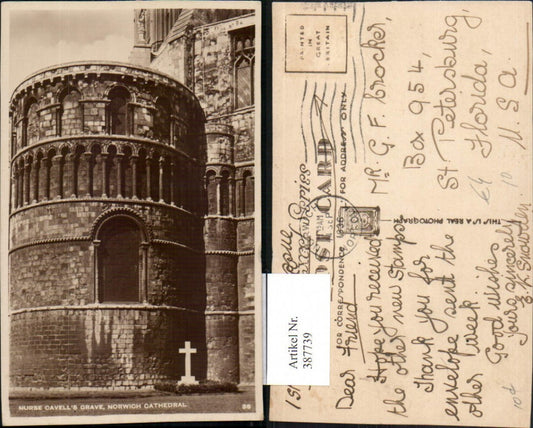 NURSE CAVELL'S GRAVE, NORWICH CATHEDRAL.
PRINTED
IN
GREAT
BRITAIN
POST CARD
FOR CORRESPONDENCE
FOR ADDRESS ONLY
THIS IS A REAL PHOTOGRAPH
1936
MR. G. F. Crocker,
Box 954,
St Petersburg,
Florida,
U.S.A.
Dear Friend,
Hope you received
the other new stamps
Thank you for
envelope sent the
other week
Good wishes
Yours sincerely
10d
10
Artikel Nr.
387739